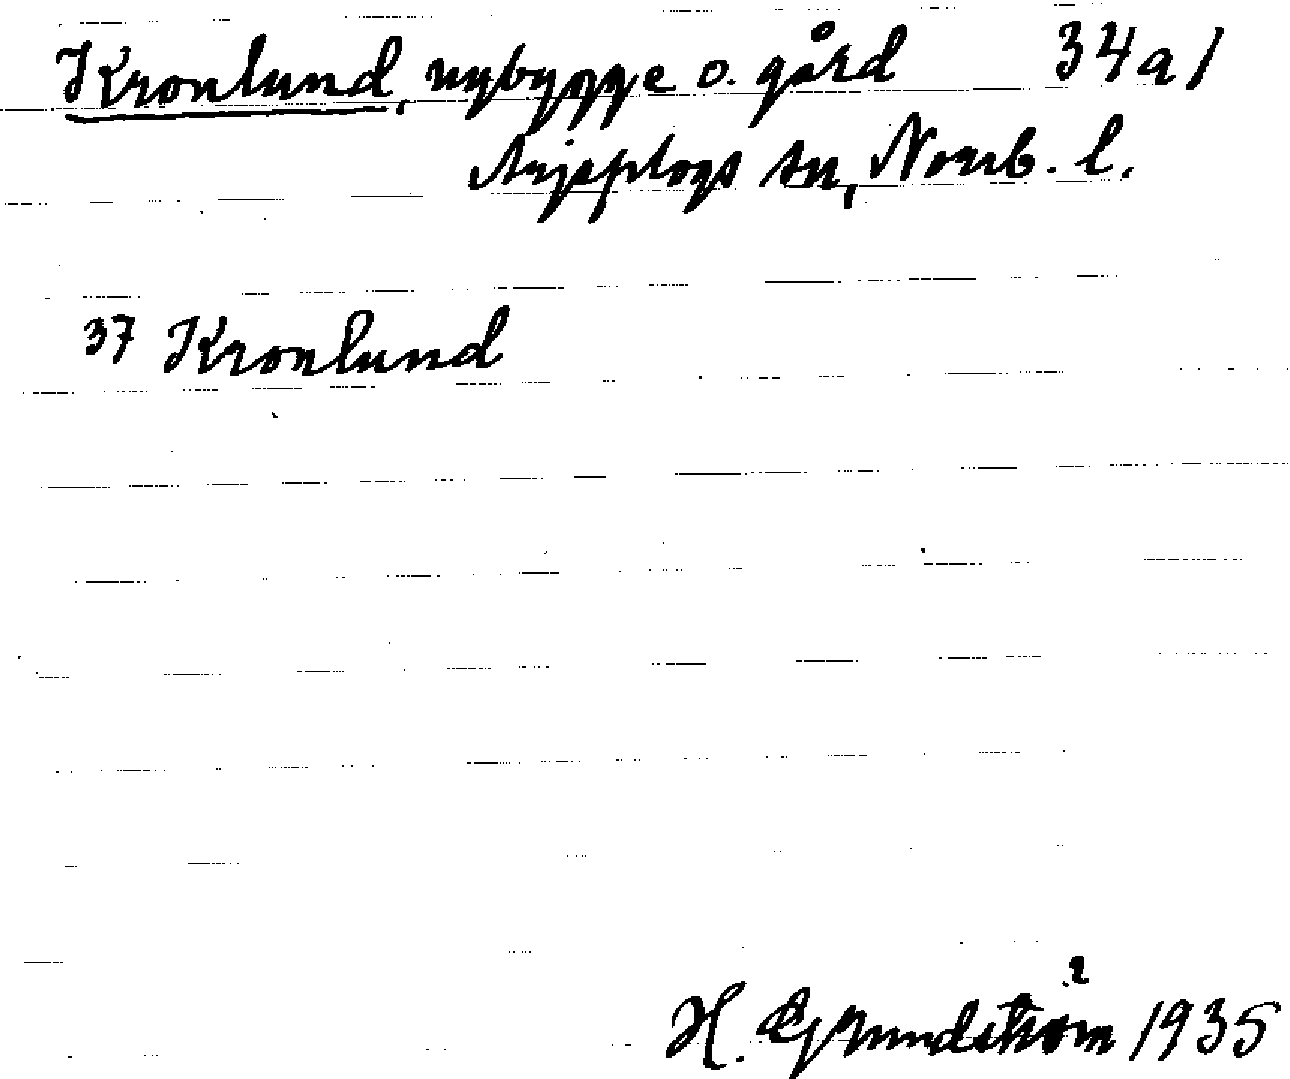 Kronlund, nybygge o. gård 34a1
Arjeplogs sn, Norrb. l.
37 Kronlund
H. Grundström 1935